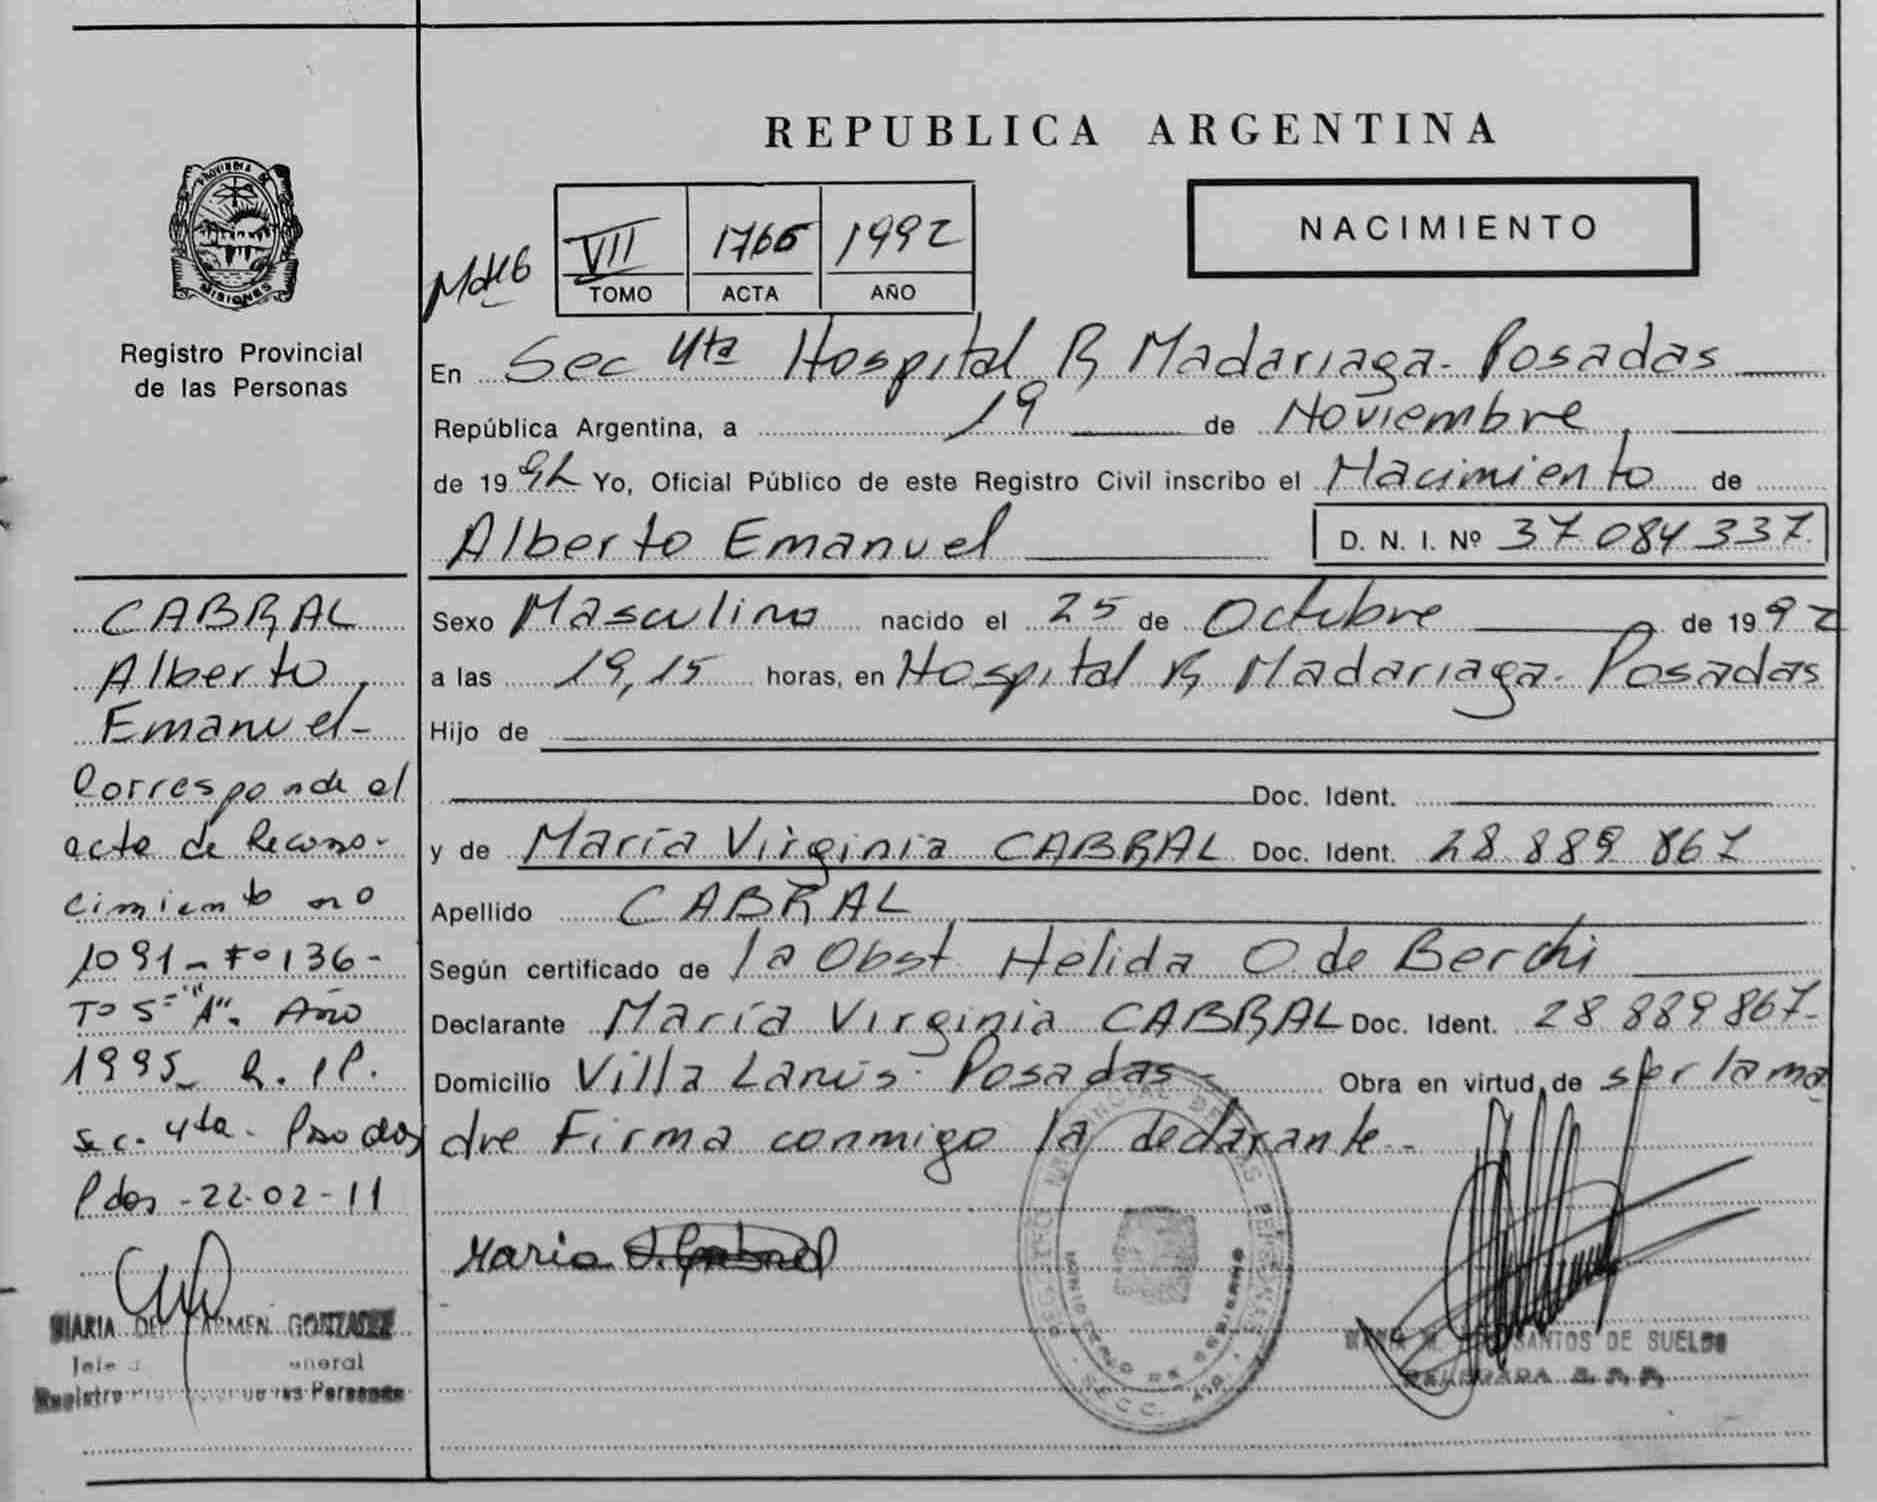 REPUBLICA ARGENTINA
PROVINCIA DE
MISIONES
Registro Provincial
de las Personas
NACIMIENTO
VII 1766 1992
TOMO ACTA AÑO
En Sec 4ta Hospital R Madariaga - Posadas
República Argentina, a 19 de Noviembre
de 1992 Yo, Oficial Público de este Registro Civil inscribo el Nacimiento de
Alberto Emanuel D. N. I. Nº 37 084 337
Sexo Masculino nacido el 25 de Octubre de 1992
a las 19,15 horas, en Hospital R Madariaga - Posadas
Hijo de
Doc. Ident.
y de María Virginia CABRAL Doc. Ident. 28 889 867
Apellido CABRAL
Según certificado de la Obst Helida O. de Berchi
Declarante María Virginia CABRAL Doc. Ident. 28 889 867-
Domicilio Villa Lanús - Posadas - Obra en virtud de ser la ma
dre Firma conmigo la declarante -
Maria
SANTOS DE SUELDO
CABRAL
Alberto
Emanuel-
Corresponde al
acta de Recono-
cimiento no
1091 - Fº 136 -
Tº 5º "A". Año
1995 - R. P.
Sec. 4ta - Posadas
Pdas - 22-02-11
MARIA DEL CARMEN GONZALEZ
Registro de las Personas